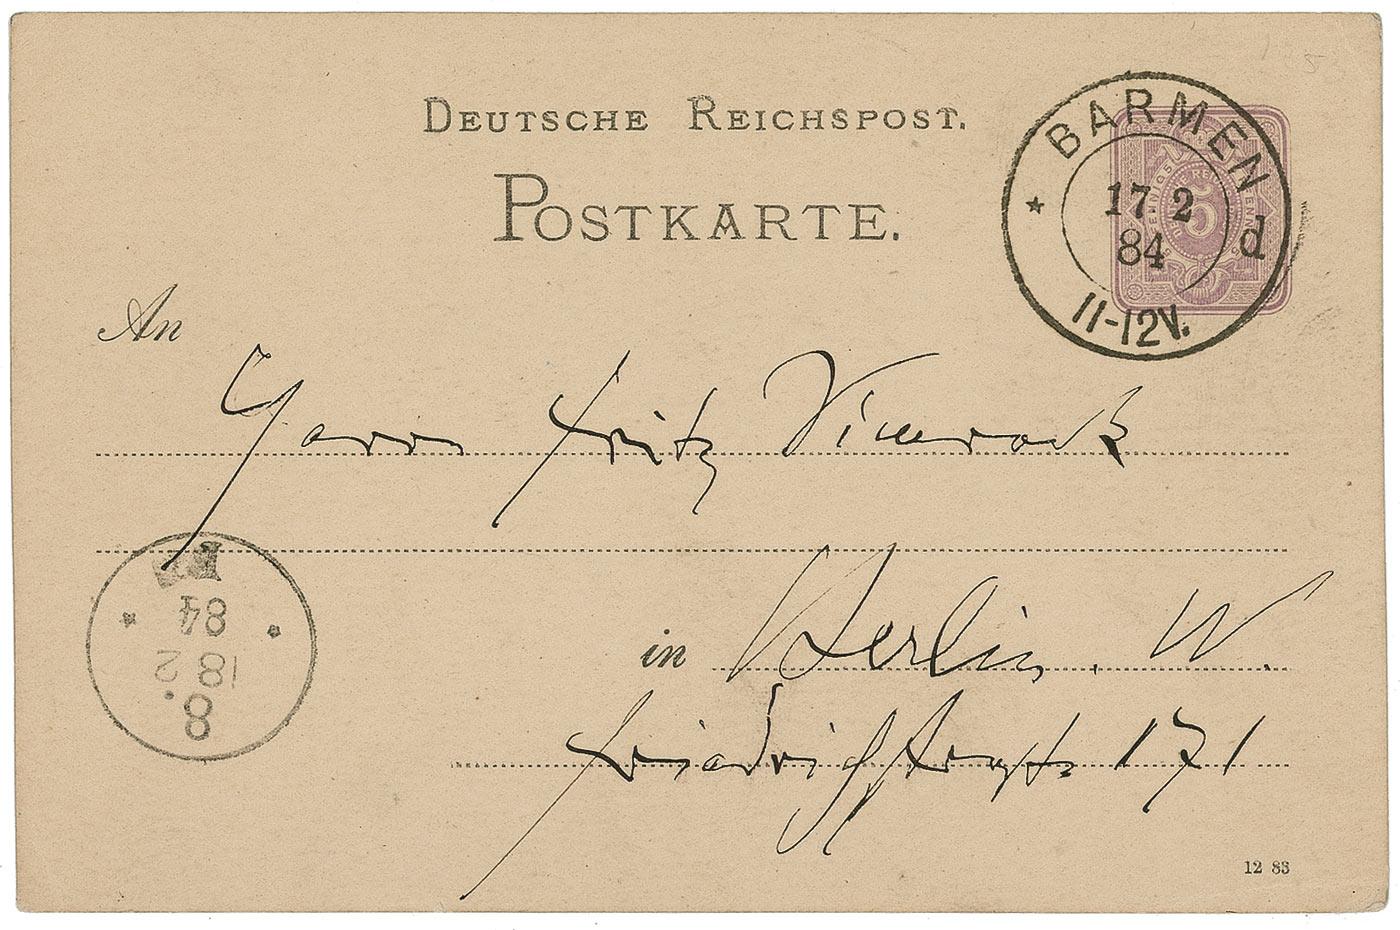 DEUTSCHE REICHSPOST.
POSTKARTE.
BARMEN
17 2
84
d
11-12V.
An
Herrn Fritz Simrock
in Berlin. W.
Friedrichstraße 171
8.
18 2
84
12 83